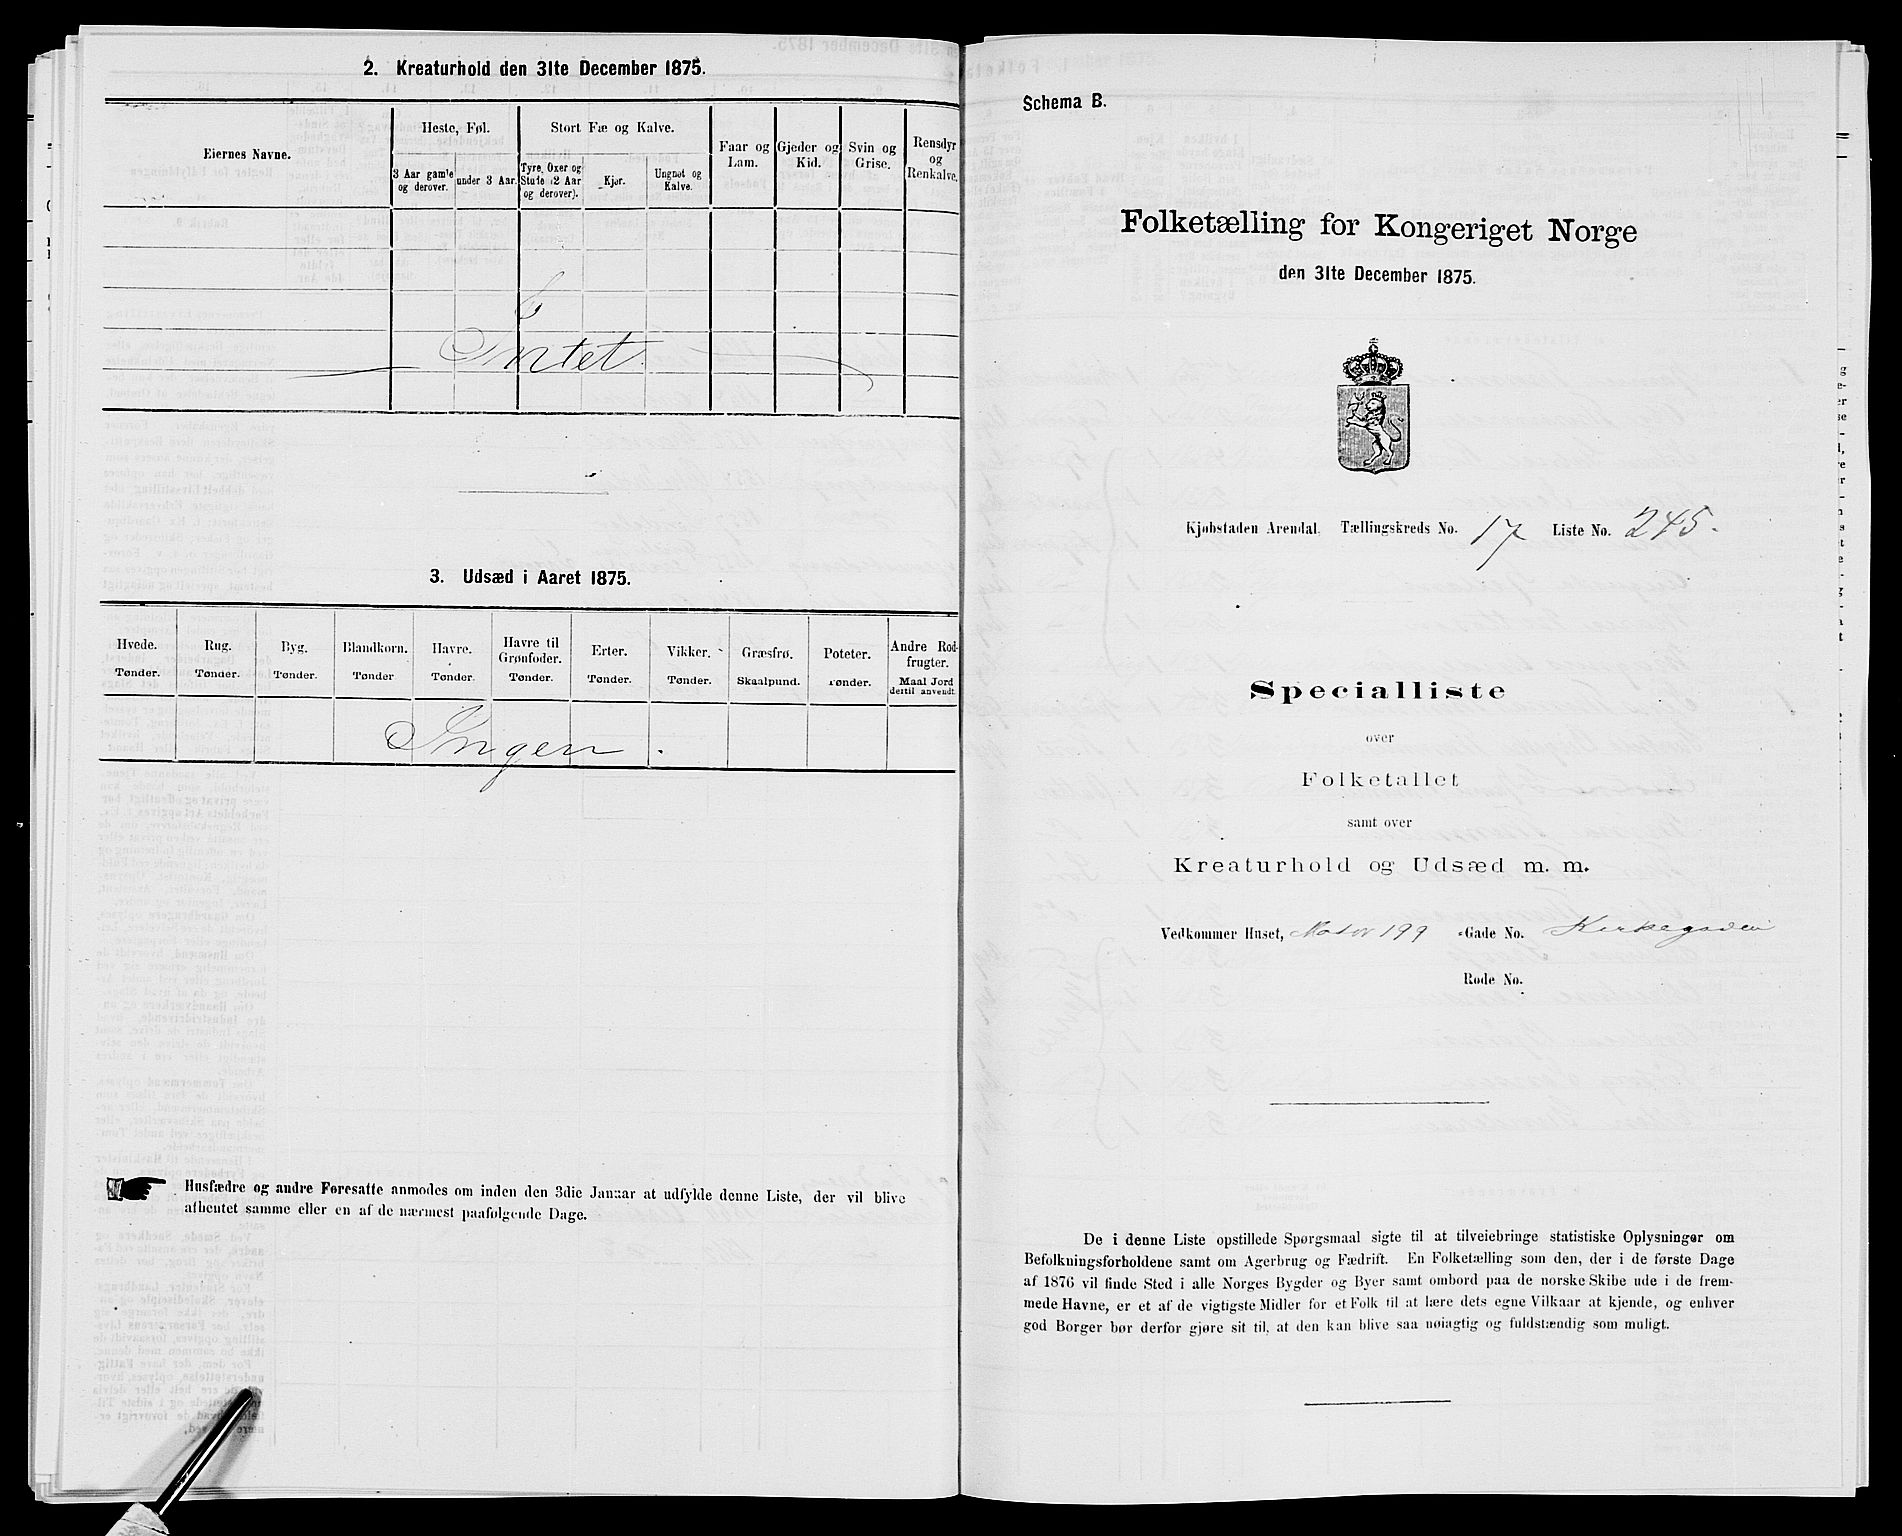 2. Kreaturhold den 31te December 1875.
Eiernes Navne.
Heste, Føl.
3 Aar gamle og derover.
under 3 Aar.
Stort Fæ og Kalve.
Tyre, Oxer og Stude (2 Aar og derover).
Kjør.
Ungnøt og Kalve.
Faar og Lam.
Gjeder og Kid.
Svin og Grise.
Rensdyr og Renkalve.
Intet
3. Udsæd i Aaret 1875.
Hvede. Tønder.
Rug. Tønder.
Byg. Tønder.
Blandkorn. Tønder
Havre. Tønder.
Havre til Grønfoder. Tønder.
Erter. Tønder.
Vikker. Tønder.
Græsfrø. Skaalpund.
Poteter. Tønder.
Andre Rodfrugter. Maal Jord dertil anvendt.
Ingen.
Husfædre og andre Foresatte anmodes om inden den 3die Januar at udfylde denne Liste, der vil blive
afhentet samme eller en af de nærmest paafølgende Dage.
Schema B.
Folketælling for Kongeriget Norge
den 31te December 1875.
Kjøbstaden Arendal. Tællingskreds No. 17 Liste No. 245.
Specialliste
over
Folketallet
samt over
Kreaturhold og Udsæd m. m.
Vedkommer Huset, Mat No 199 -Gade No. Kirkegaden
Rode No.
De i denne Liste opstillede Spørgsmaal sigte til at tilveiebringe statistiske Oplysninger om
Befolkningsforholdene samt om Agerbrug og Fædrift. En Folketælling som den, der i de første Dage
af 1876 vil finde Sted i alle Norges Bygder og Byer samt ombord paa de norske Skibe ude i de frem-
mede Havne, er et af de vigtigste Midler for et Folk til at lære dets egne Vilkaar at kjende, og enhver
god Borger bør derfor gjøre sit til, at den kan blive saa nøiagtig og fuldstændig som muligt.